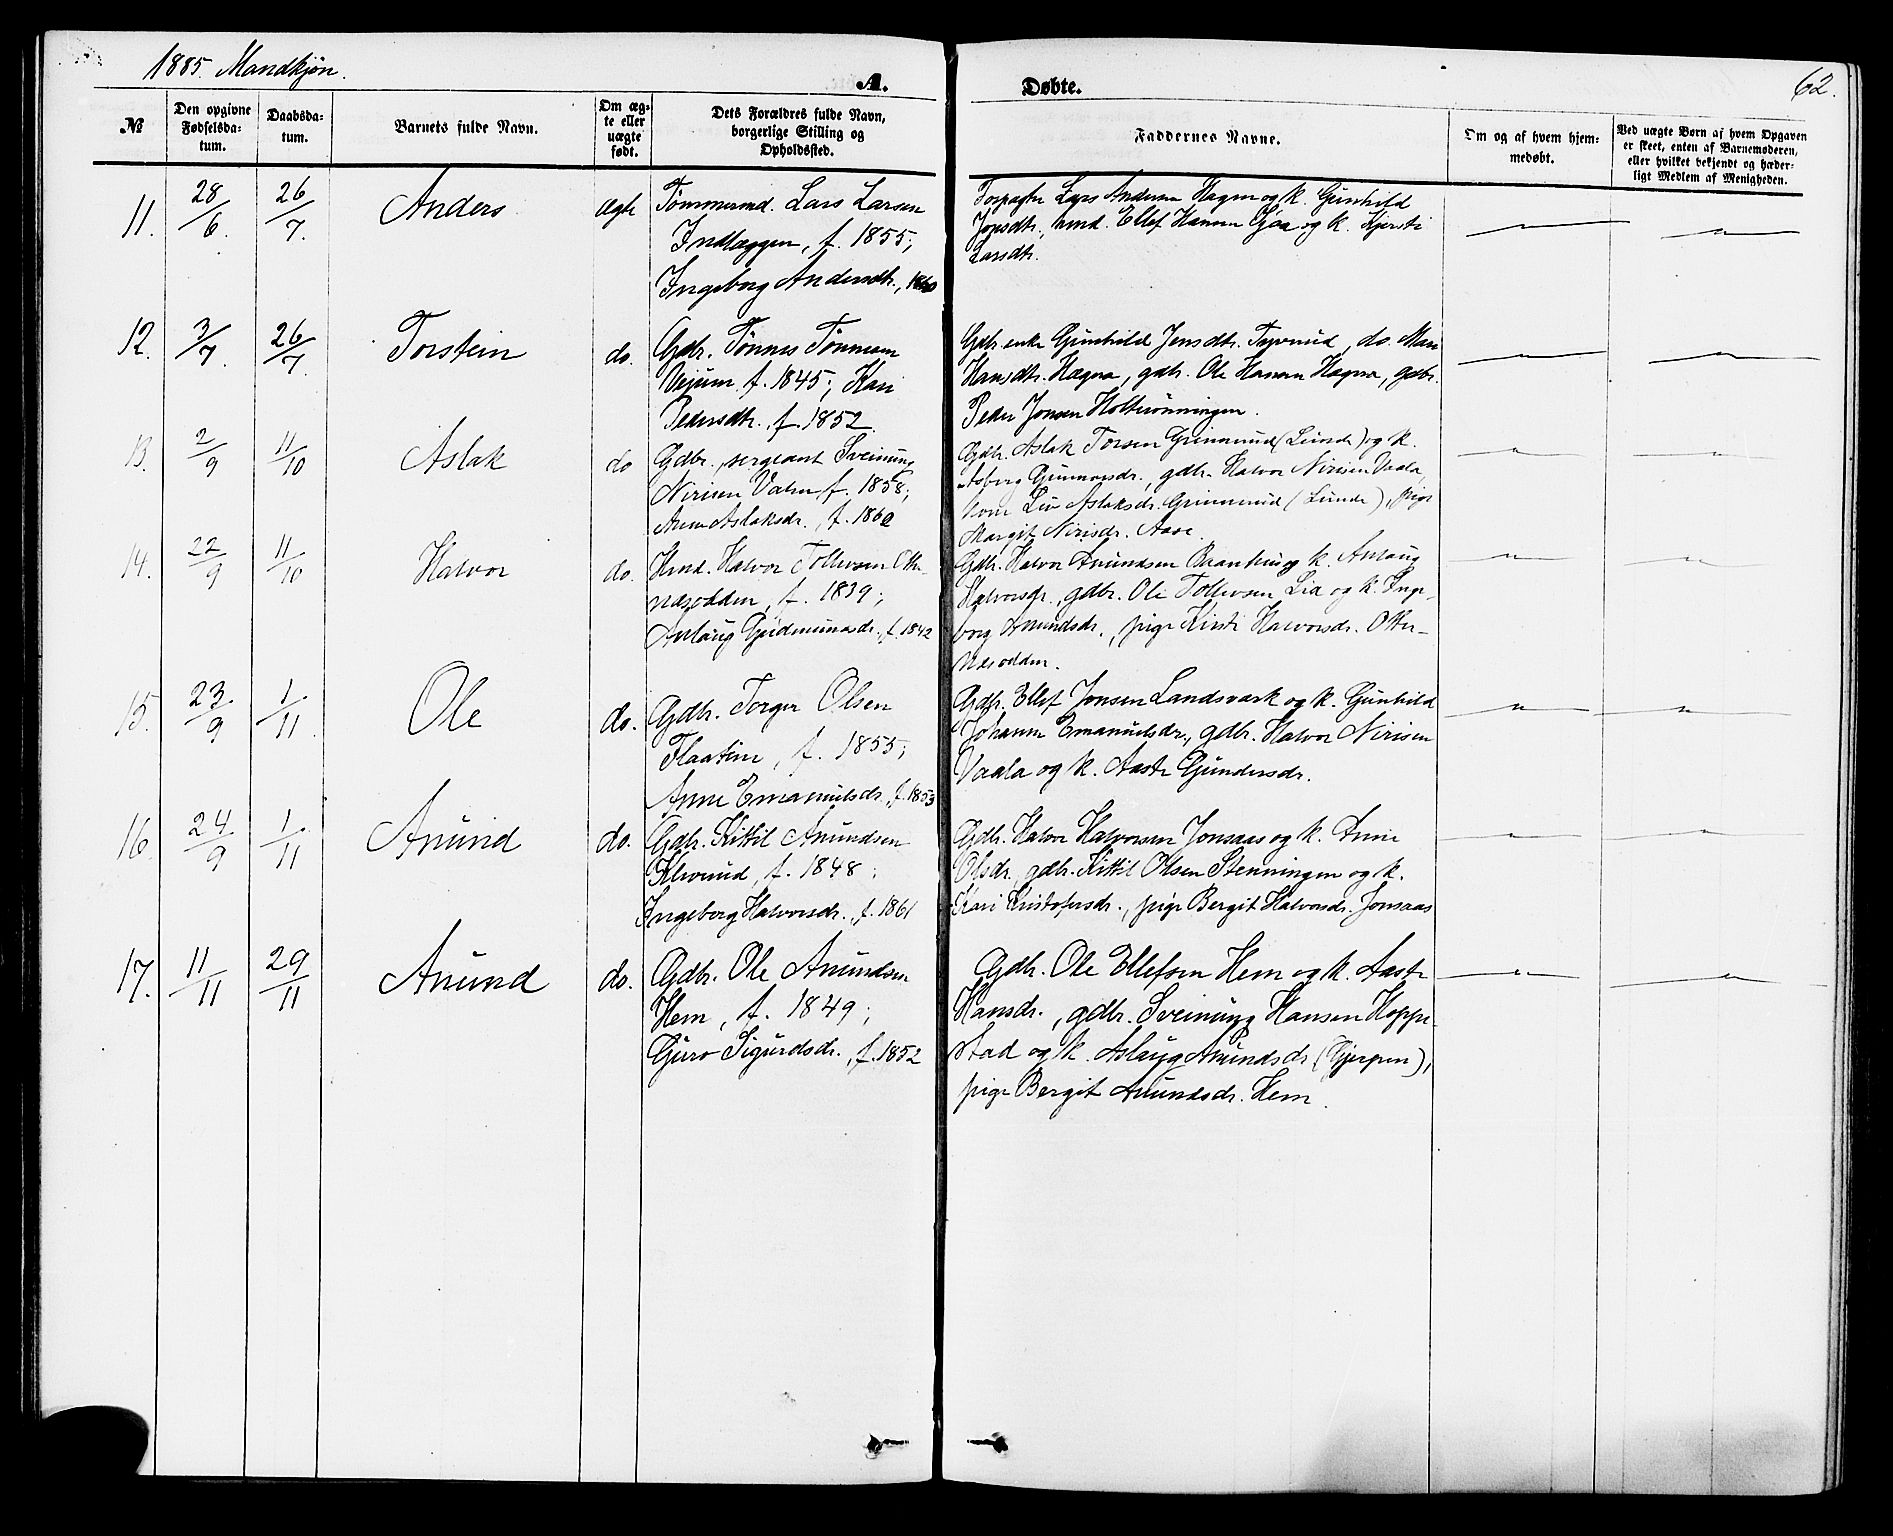 1885. Mandkjøn.
A.
Døbte.
62.
№
Den opgivne Fødselsdatum.
Daabsdatum.
Barnets fulde Navn.
Om ægte eller uægte født.
Dets Forældres fulde Navn, borgerlige Stilling og Opholdssted.
Faddernes Navne.
Om og af hvem hjemmedøbt.
Ved uægte Børn af hvem Opgaven er skeet, enten af Barnemoderen, eller hvilket bekjendt og hæderligt Medlem af Menigheden.
11. 28/6. 26/7. Anders ægte
Tømmermd. Lars Larsen
Indlæggen, f. 1855;
Ingeborg Andersdtr., 1860
Lars Andersen Hagen og k. Gunhild
hmd. Ellef Hansen og k. Kjersti
Larsdtr.
12. 3/7. 26/7. Torstein do.
Gdbr. Tønnes Tønnesen
Vejum, f. 1845; Kari
Pedersdtr., f. 1852.
Gdbr. enke Gunhild Jensdtr. do. Mari
Hansdtr. Hægna, gdbr. Ole Hansen Hagna, gdbr.
Peder Jonsen Holterønningen.
13. 2/9 11/10 Aslak do
Gdbr., sergeant Sveinung
Nirisen Valen, f. 1858;
Anne Aslaksdr., f. 1860
Gdbr. Aslak Torsen Grimmerud (Lunde) og k.
Asberg Gunnarsdr., gdbr. Halvor Nirisen Vaala,
kone Liv Aslaksdr. Grimmerud (Lunde), pige
Margit Nirisdr. Aase.
14. 22/9 11/10 Halvor do.
Hmd. Halvor Tollevsen Otter-
næsodden, f. 1839;
Anlaug Gudmunsdr., f. 1842
Gdbr. Halvor Anundsen og k. Anlaug
Halvorsdr., gdbr. Ole Tollevsen Lia og k. Inge-
borg Anundsdr., pige Kirsti Halvorsdr. Otter-
næsodden.
15. 23/9 1/11. Ole do.
Gdbr. Torger Olsen
Flaatine, f. 1855;
Anne Emanuelsdr., f. 1853
Gdbr. Ellef Jonsen Landsværk og k. Gunhild
Johanne Emanuelsdr., gdbr. Halvor Nirisen
Vaala og k. Aaste Gundersdr.
16. 24/9 1/11 Anund do.
Gdbr. Kittil Anundsen
Kleverud, f. 1848;
Ingeborg Halvorsdr., f. 1861
Gdbr. Halvor Halvorsen Jonsaas og k. Anne
Olsdr., gdbr. Kittil Olsen Stenningen og k.
Kari Kristofersdr., pige Bergit Halvorsdr. Jonsaas
17. 11/11 29/11 Anund do.
Gdbr. Ole Anundsen
Hem, f. 1849;
Guro Sigurdsdr., f. 1852
Gdbr. Ole Ellefsen Hem og k. Aaste
Hansdr., gdbr. Sveinung Hansen Hoppe-
stad og k. Aslaug Anundsdr (Gjerpen),
pige Bergit Anundsdr. Hem.